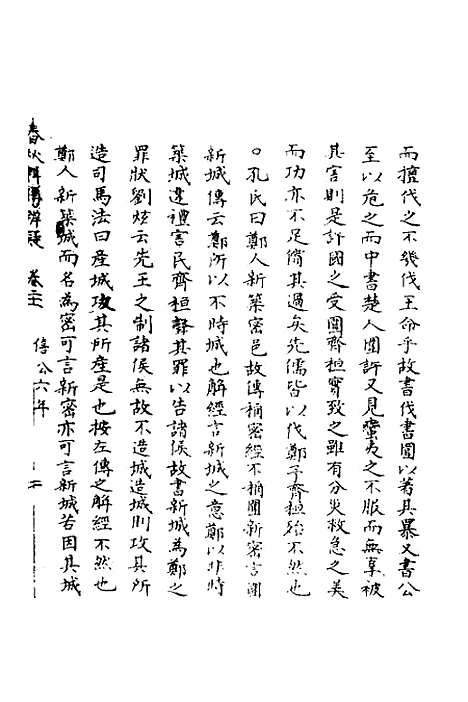 而擅伐之不幾伐王命乎故書伐書圍以著其暴又書公
至以危之而中書楚人圍許又見蠻夷之不服而無辜被
其害則是許國之受圍齊桓實致之雖有分災救急之美
而功亦不足償其過矣先儒皆以伐鄭予齊桓殆不然也
○孔氏曰鄭人新築密邑故傳稱密經不稱圍新密言圍
新城傳云鄭所以不時城也解經言新城之意鄭以非時
築城違禮害民齊桓聲其罪以告諸侯故書新城為鄭之
罪狀劉炫云先王之制諸侯無故不造城造城則攻其所
造司馬法曰産城攻其所産是也按左傳之解經不然也
鄭人新築城而名為密可言新密亦可言新城若因其城
春秋辨傳辨疑 卷三 僖公六年